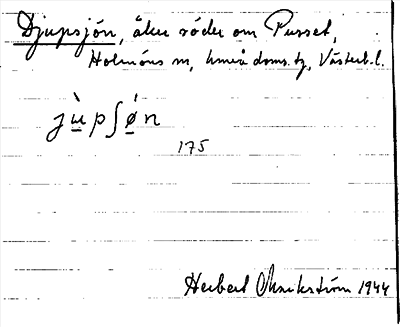 Djupsjön, åker söder om Pusset,
Holmöns sn, Umeå doms. tg, Västerb. l.
jùpʃǿn
175
Herbert 1944